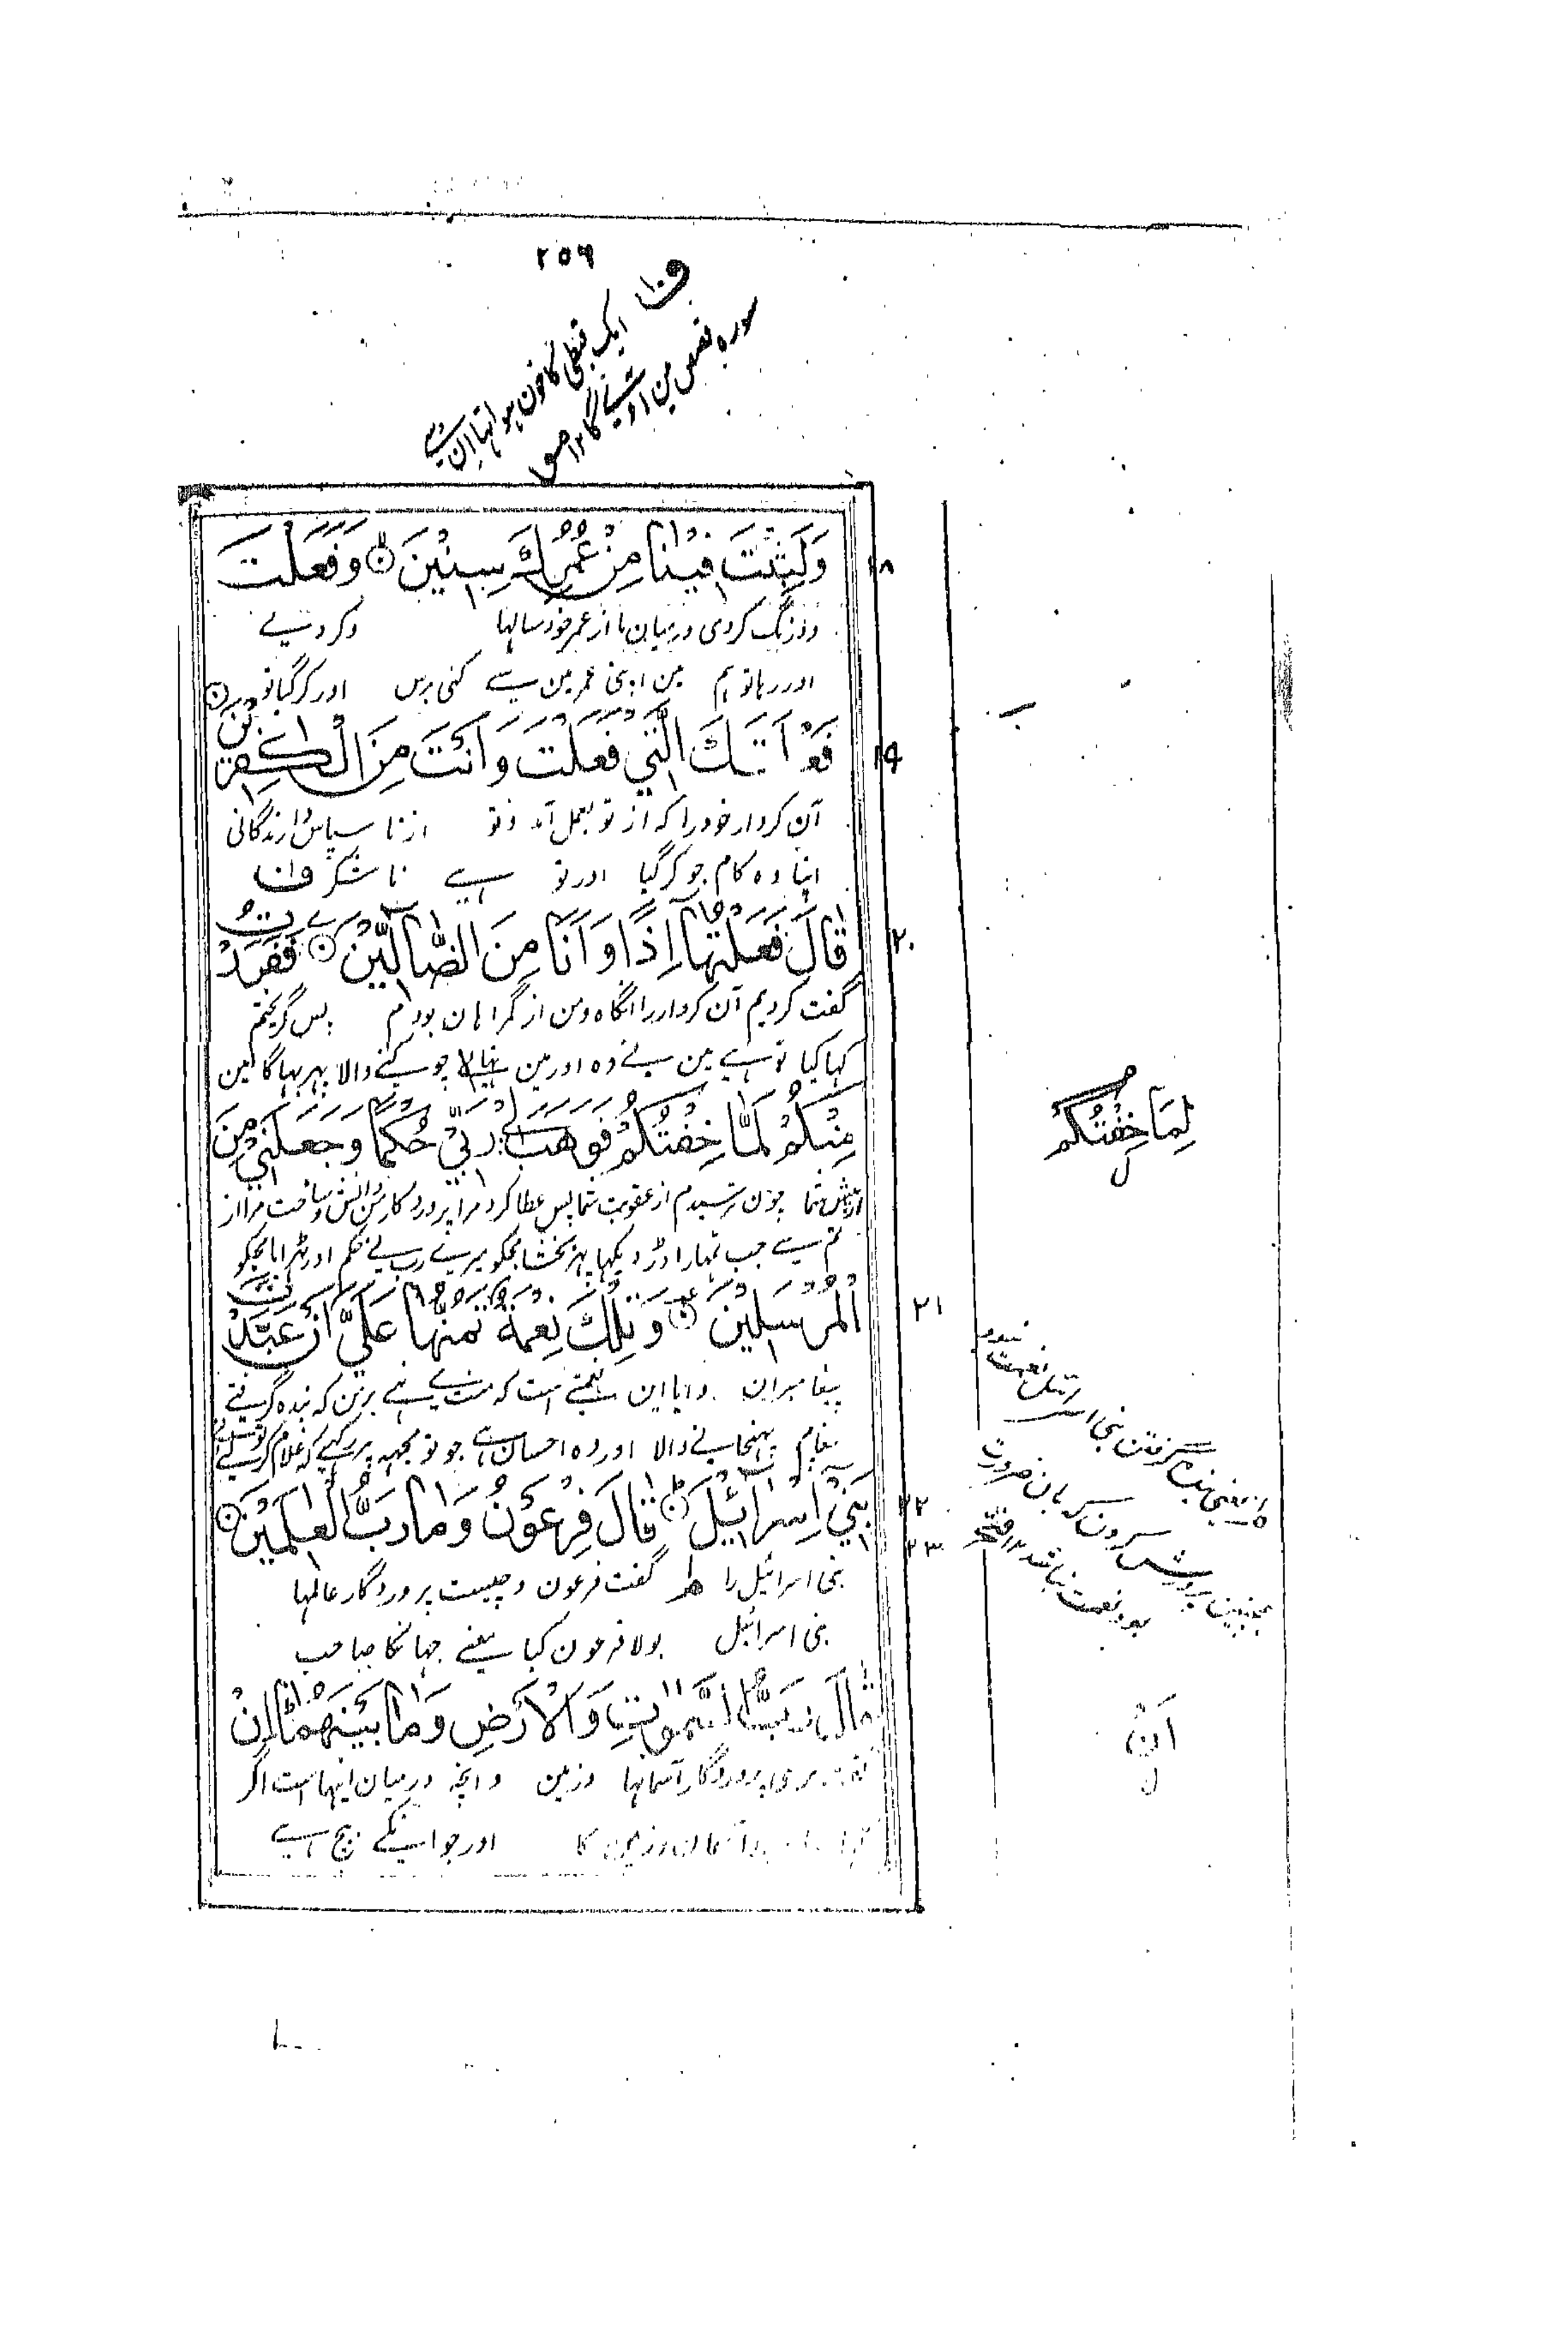 ۲۵۶
ف۱
ایک قبطی کا خون ہوا تہا ان سے
سورہ قصص مین آویگا ۱۲ مص
وَلَبِثْتَ فِيْنَا مِنْ عُمُرِكَ سِنِيْنَ وَفَعَلْتَ
۱۸
ودرنگ کردی درمیان ما از عمر خود سالہا وکردے
اور رہا تو ہم مین اپنی عمر مین سے کئی برس اور کر گیا تو
فَعْلَتَكَ الَّتِيْ فَعَلْتَ وَاَنْتَ مِنَ الْكٰفِرِيْنَ
۱۹
آن کردار خود را کہ از تو بعمل آمد وتو از نا سپاس دارندگانی
اپنا وہ کام جو کر گیا اور تو ہے نا شکر ف۱
قَالَ فَعَلْتُهَآ اِذًا وَّاَنَا مِنَ الضَّآلِّيْنَ فَفَرَرْتُ
۲۰
گفت کردیم آن کردار را آنگاہ ومن از گمراہان بودم پس گریختم
کہا کیا تو ہے مین نے وہ اور مین تہا چوکنے والا پہر بہاگا مین
مِنْكُمْ لَمَّا خِفْتُكُمْ فَوَهَبَ لِيْ رَبِّيْ حُكْمًا وَّجَعَلَنِيْ مِنَ
لِمَا خِفْتُكُمْ
ل
از پیش شما چون ترسیدم از عقوبت شما پس عطا کرد مرا پروردگار من دانش وساخت مرا از
تم سے جب تمہارا ڈر دیکہا پہر بخشا مجکو میرے رب نے حکم اور ٹہرایا مجکو
الْمُرْسَلِيْنَ وَتِلْكَ نِعْمَةٌ تَمُنُّهَا عَلَيَّ اَنْ عَبَّدْتَّ
۲۱
پیغامبران وآیا این نعمتے است کہ منت مے نہی بر من کہ بندہ گرفتے
پیغام پہنچانے والا اور وہ احسان ہے جو تو مجہہ پر رکہے کہ غلام کر لیے تونے
بَنِيْٓ اِسْرَآئِيْلَ قَالَ فِرْعَوْنُ وَمَا رَبُّ الْعٰلَمِيْنَ
۲۲
۲۳
بنی اسرائیل را گفت فرعون وچیست پروردگار عالمہا
بنی اسرائیل بولا فرعون کیا معنے جہان کا صاحب
قَالَ رَبُّ السَّمٰوٰتِ وَالْاَرْضِ وَمَا بَيْنَهُمَا اِنْ
اَنْ
ل
پروردگار آسمانہا وزمین وآنچہ درمیان اینہا است اگر
آسمان وزمین کا اور جو انکے بیچ ہے